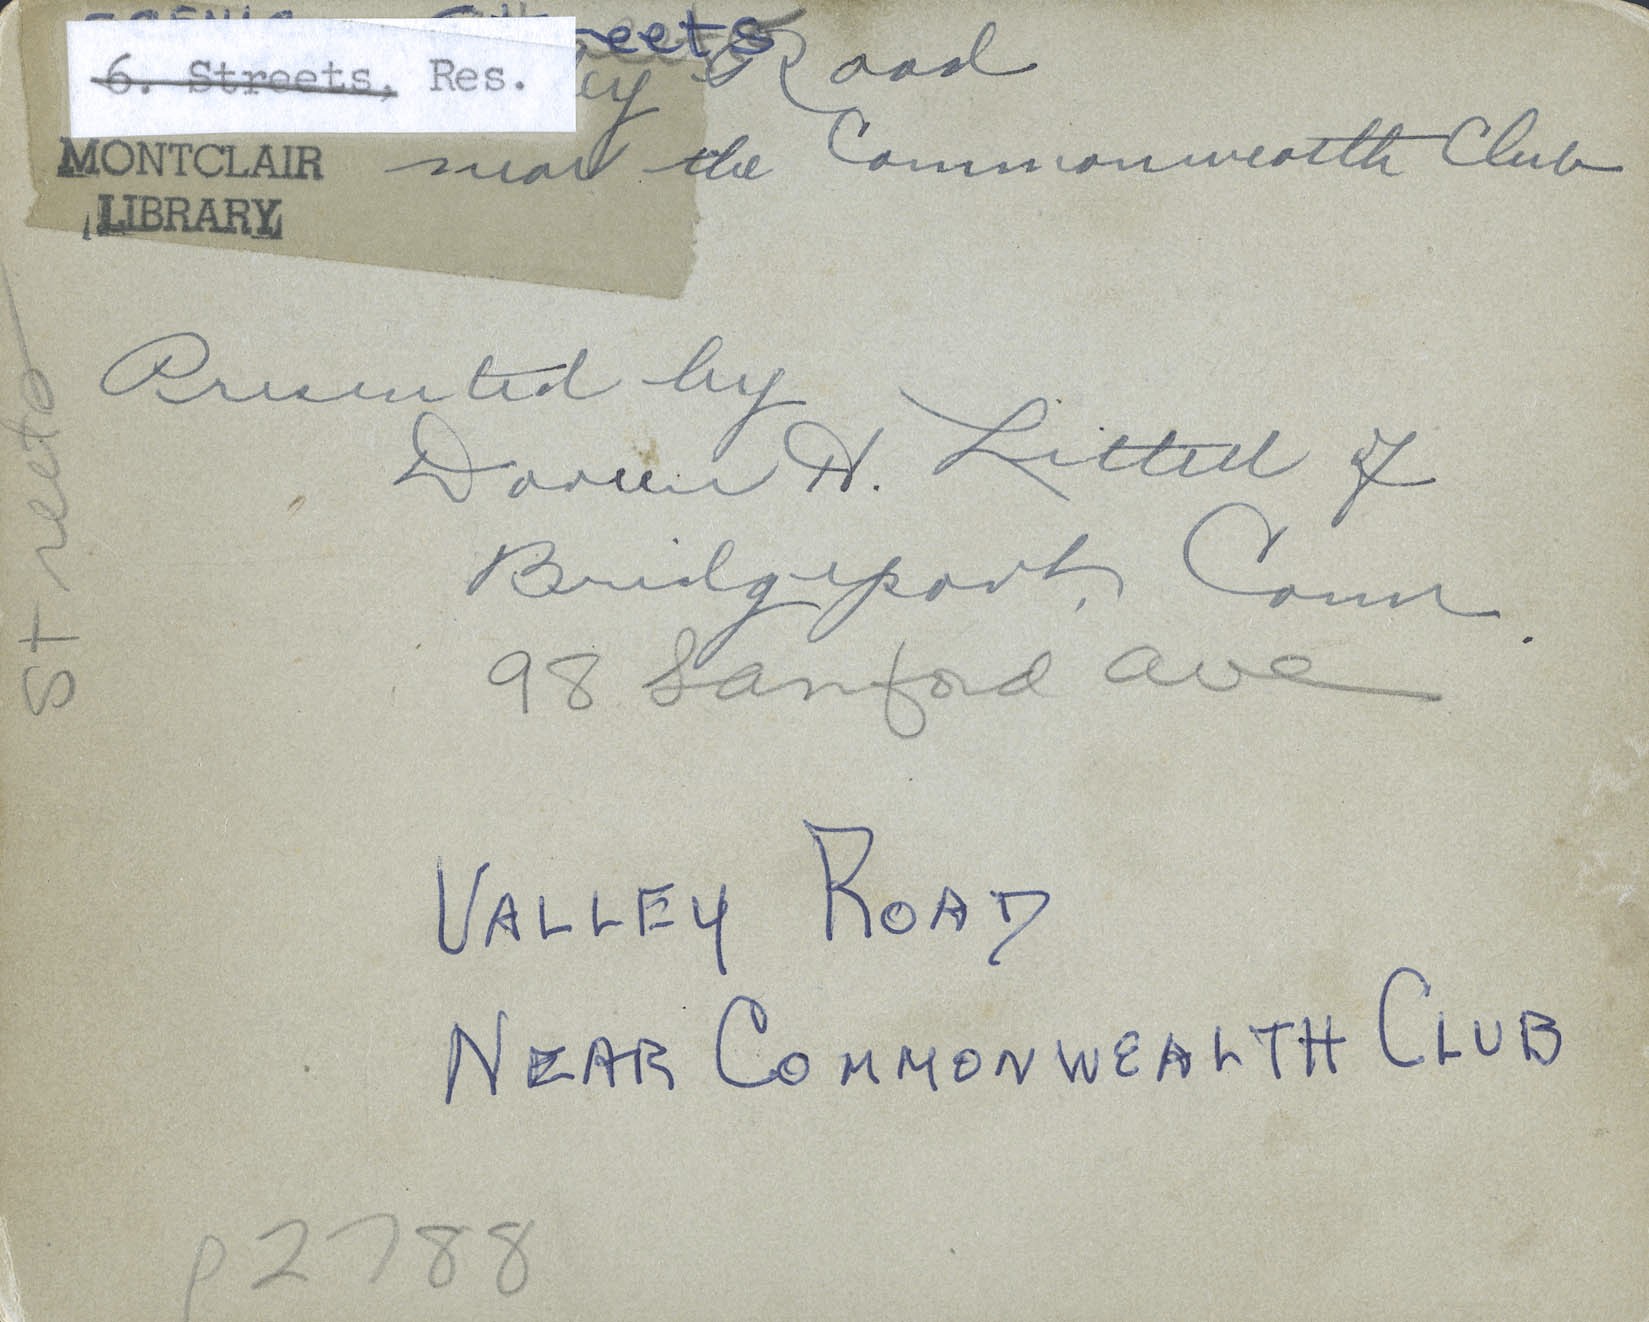 Streets
6. Streets, Res.
Road
near the Commonwealth Club
MONTCLAIR
LIBRARY
Streets
Presented by
H.
Bridgeport, Conn.
98 Sanford Ave
VALLEY ROAD
NEAR COMMONWEALTH CLUB
p2788